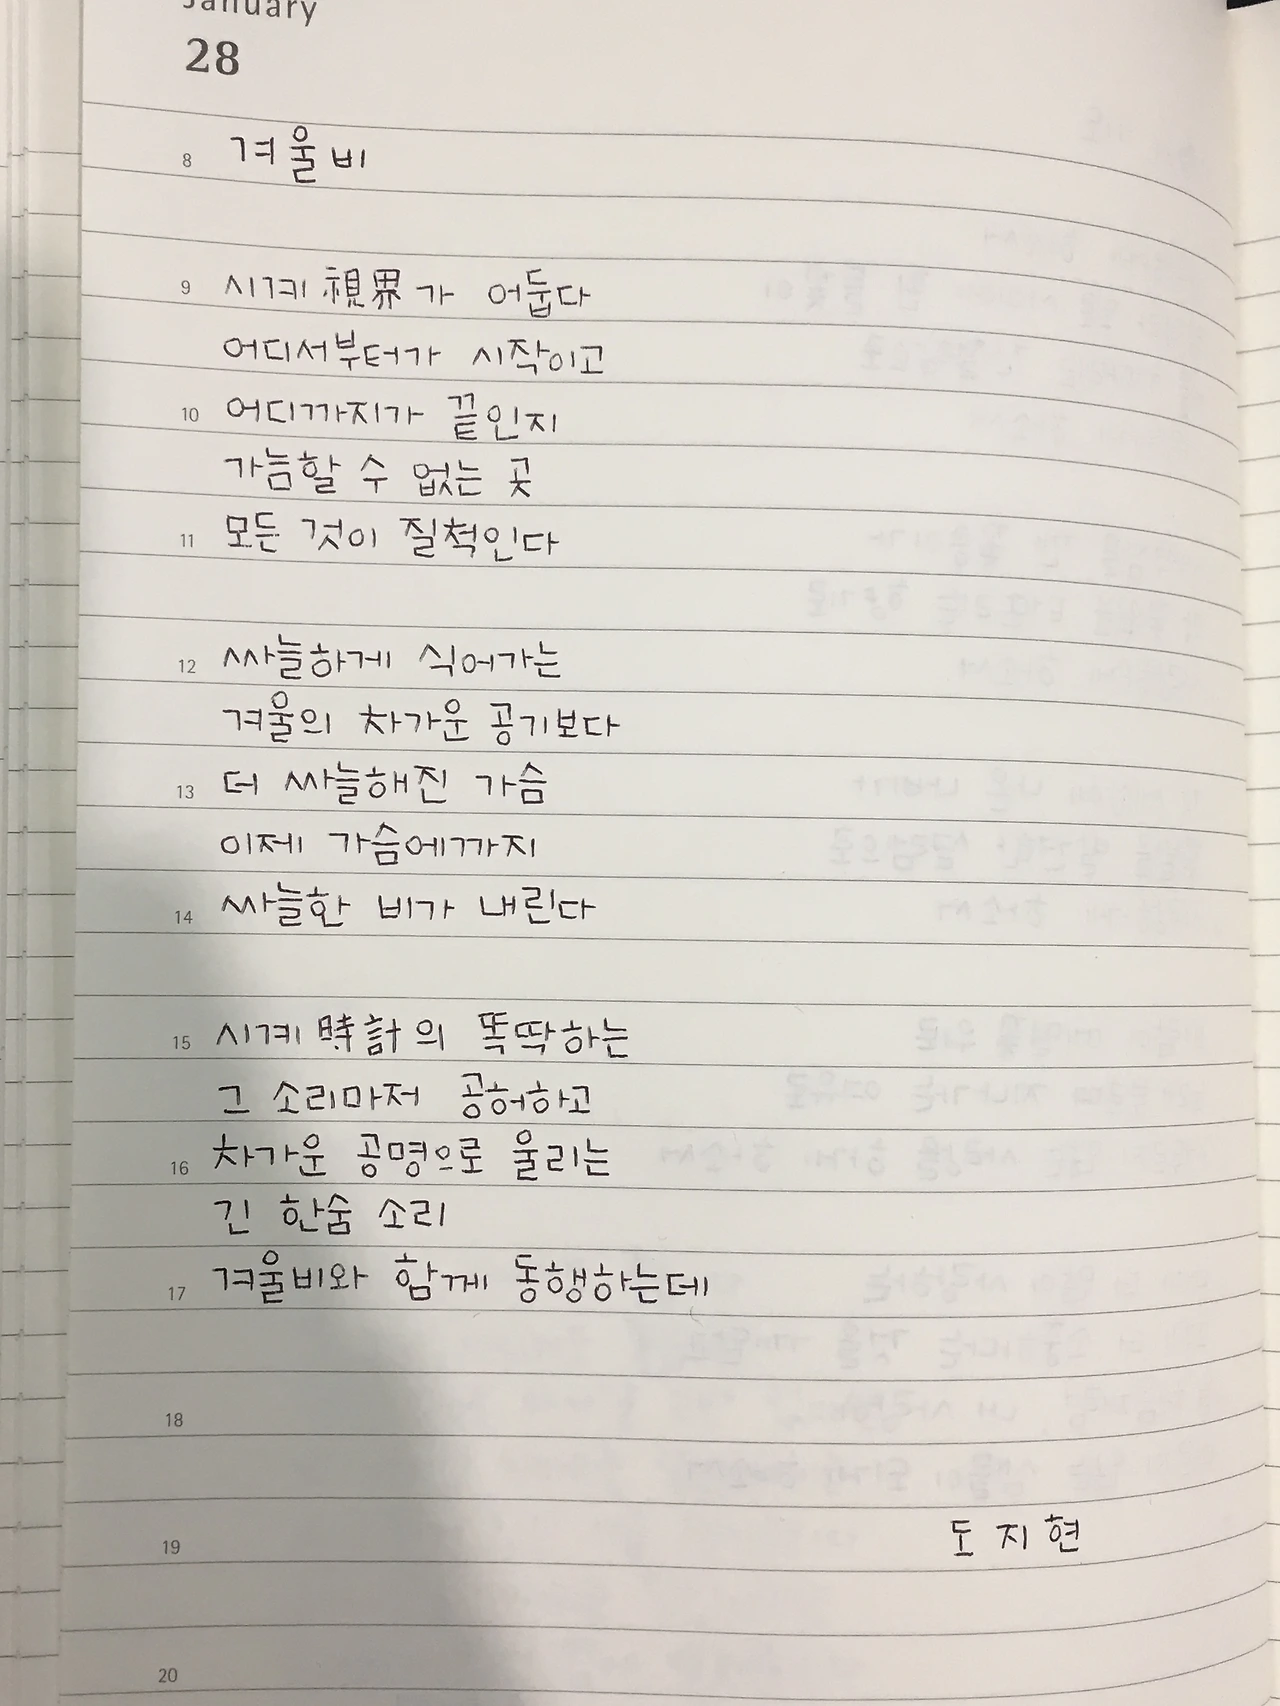 January
28
8 겨울비
9 시계視界가 어둡다
어디서부터가 시작이고
10 어디까지가 끝인지
가늠할 수 없는 곳
11 모든 것이 질척인다
12 싸늘하게 식어가는
겨울의 차가운 공기보다
13 더 싸늘해진 가슴
이제 가슴에까지
14 싸늘한 비가 내린다
15 시계時計의 똑딱하는
그 소리마저 공허하고
16 차가운 공명으로 울리는
긴 한숨 소리
17 겨울비와 함께 동행하는데
18
19 도지현
20